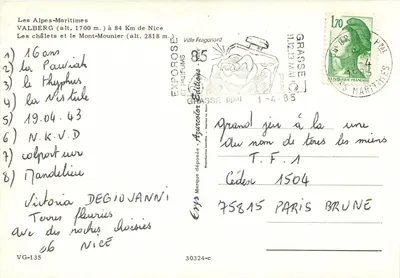 Les Alpes-Maritimes
VALBERG (alt. 1700 m.) à 84 Km de Nice
Les châlets et le Mont-Mounier (alt. 2818 m.)
1) 16 ans
2) la Pawiak
3) le typhus
4) la Vistule
5) 19.04.43
6) N.K.V.D
7) colporteur
8) Mandelieu
Victoria DEGIOVANNI
Terres fleuries
ave des roches choisies
06 NICE
VG-135
30324-c
Marque déposée
Ville Fragonard
85
EXPOROSE
GRASSE
11.12.13 MAI
1-4-85
1,70
MARITIMES
grand jeu à la une
au nom de tous les miens
T.F.1
Cédex 1504
75815 PARIS BRUNE